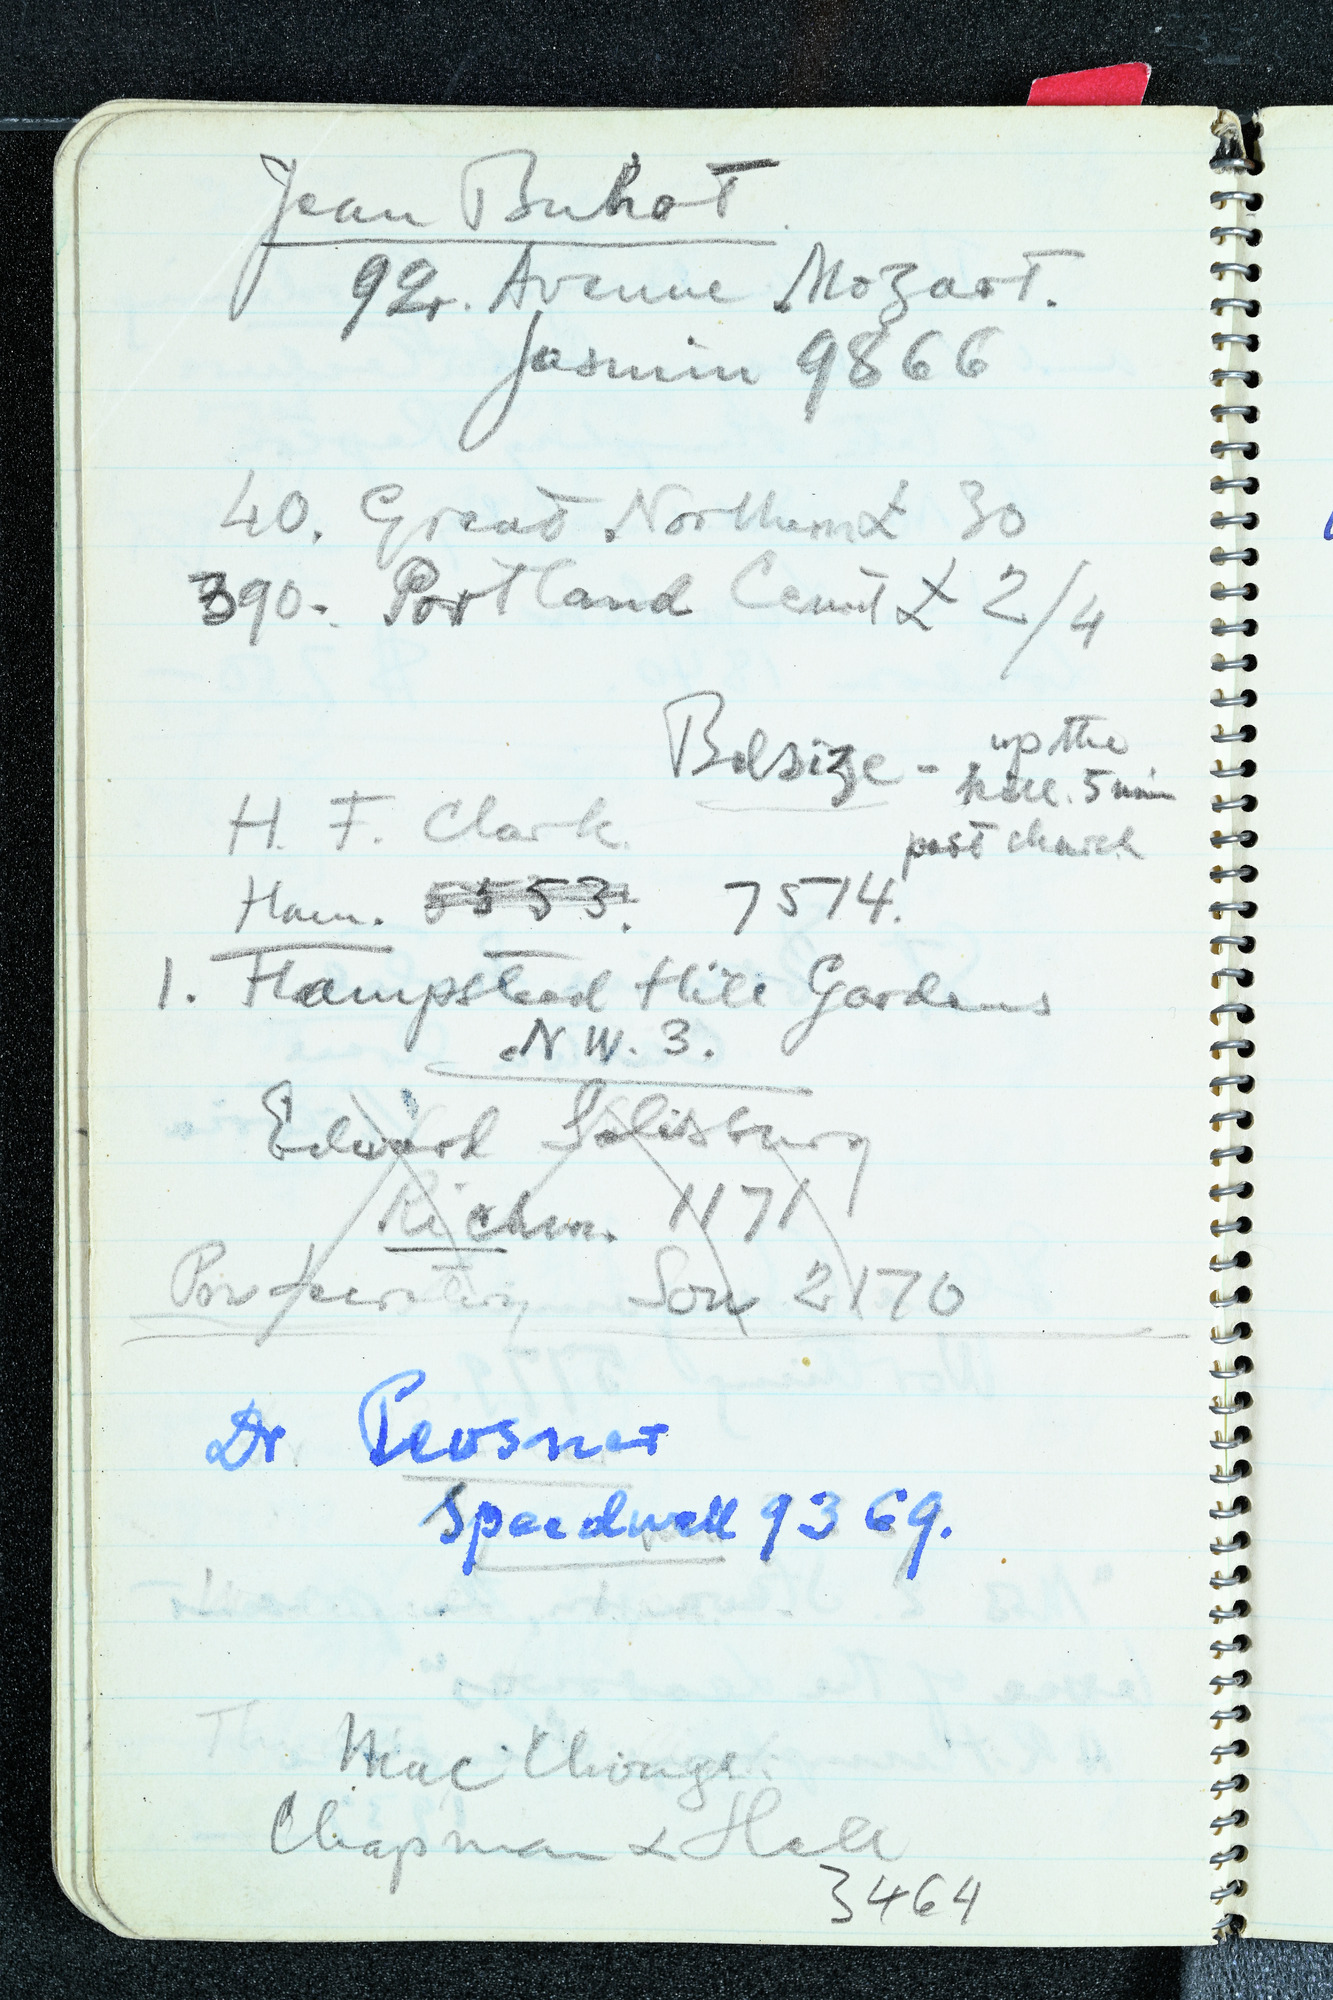 Jean Buhot
92. Avenue Mozart.
Jasmin 9866
40. Great Northern £ 30
390. Portland Cemt £ 2/4
Belsize - up the
hill. 5 min
past church
H. F. Clark.
Ham. 5553. 7514.
1. Hampstead Hill Gardens
N.W. 3.
Edward Salisbury
Richm. 1171
Son 2170
Dr Pevsner
Speedwell 9369.
Chapman & Hall
3464